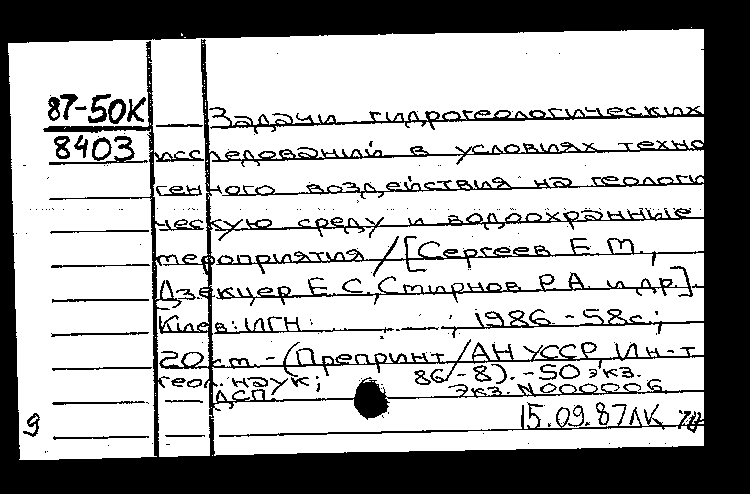 87-50К
8403
Задачи гидрогеологических
исследований в условиях техно
генного воздействия на геологи
ческую среду и водоохранные
мероприятия / [Сергеев Е. М.,
Дзекцер Е. С., Смирнов Р. А. и др.].
Киев: ИГН ; 1986. - 58 с.;
20 см. - (Препринт / АН УССР Ин-т
геол. наук; 86-8). - 50 экз.
ДСП. Экз. N 000006
15.09.87 ЛК
9